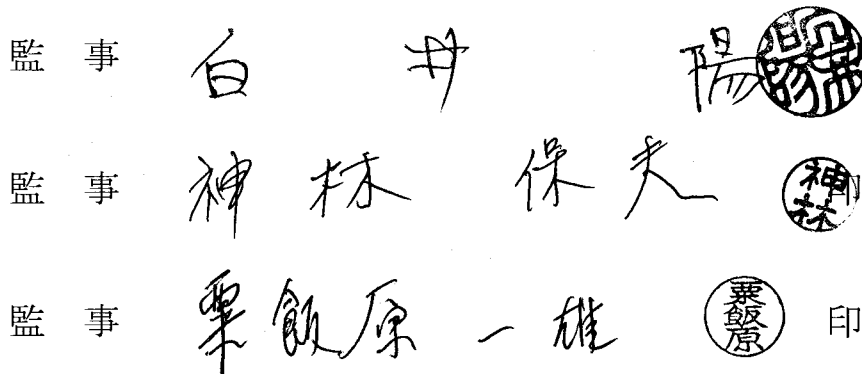 監 事 白 井 陽
監 事 神 林 保 夫 神林 印
監 事 粟 飯 原 一 雄 粟飯原 印